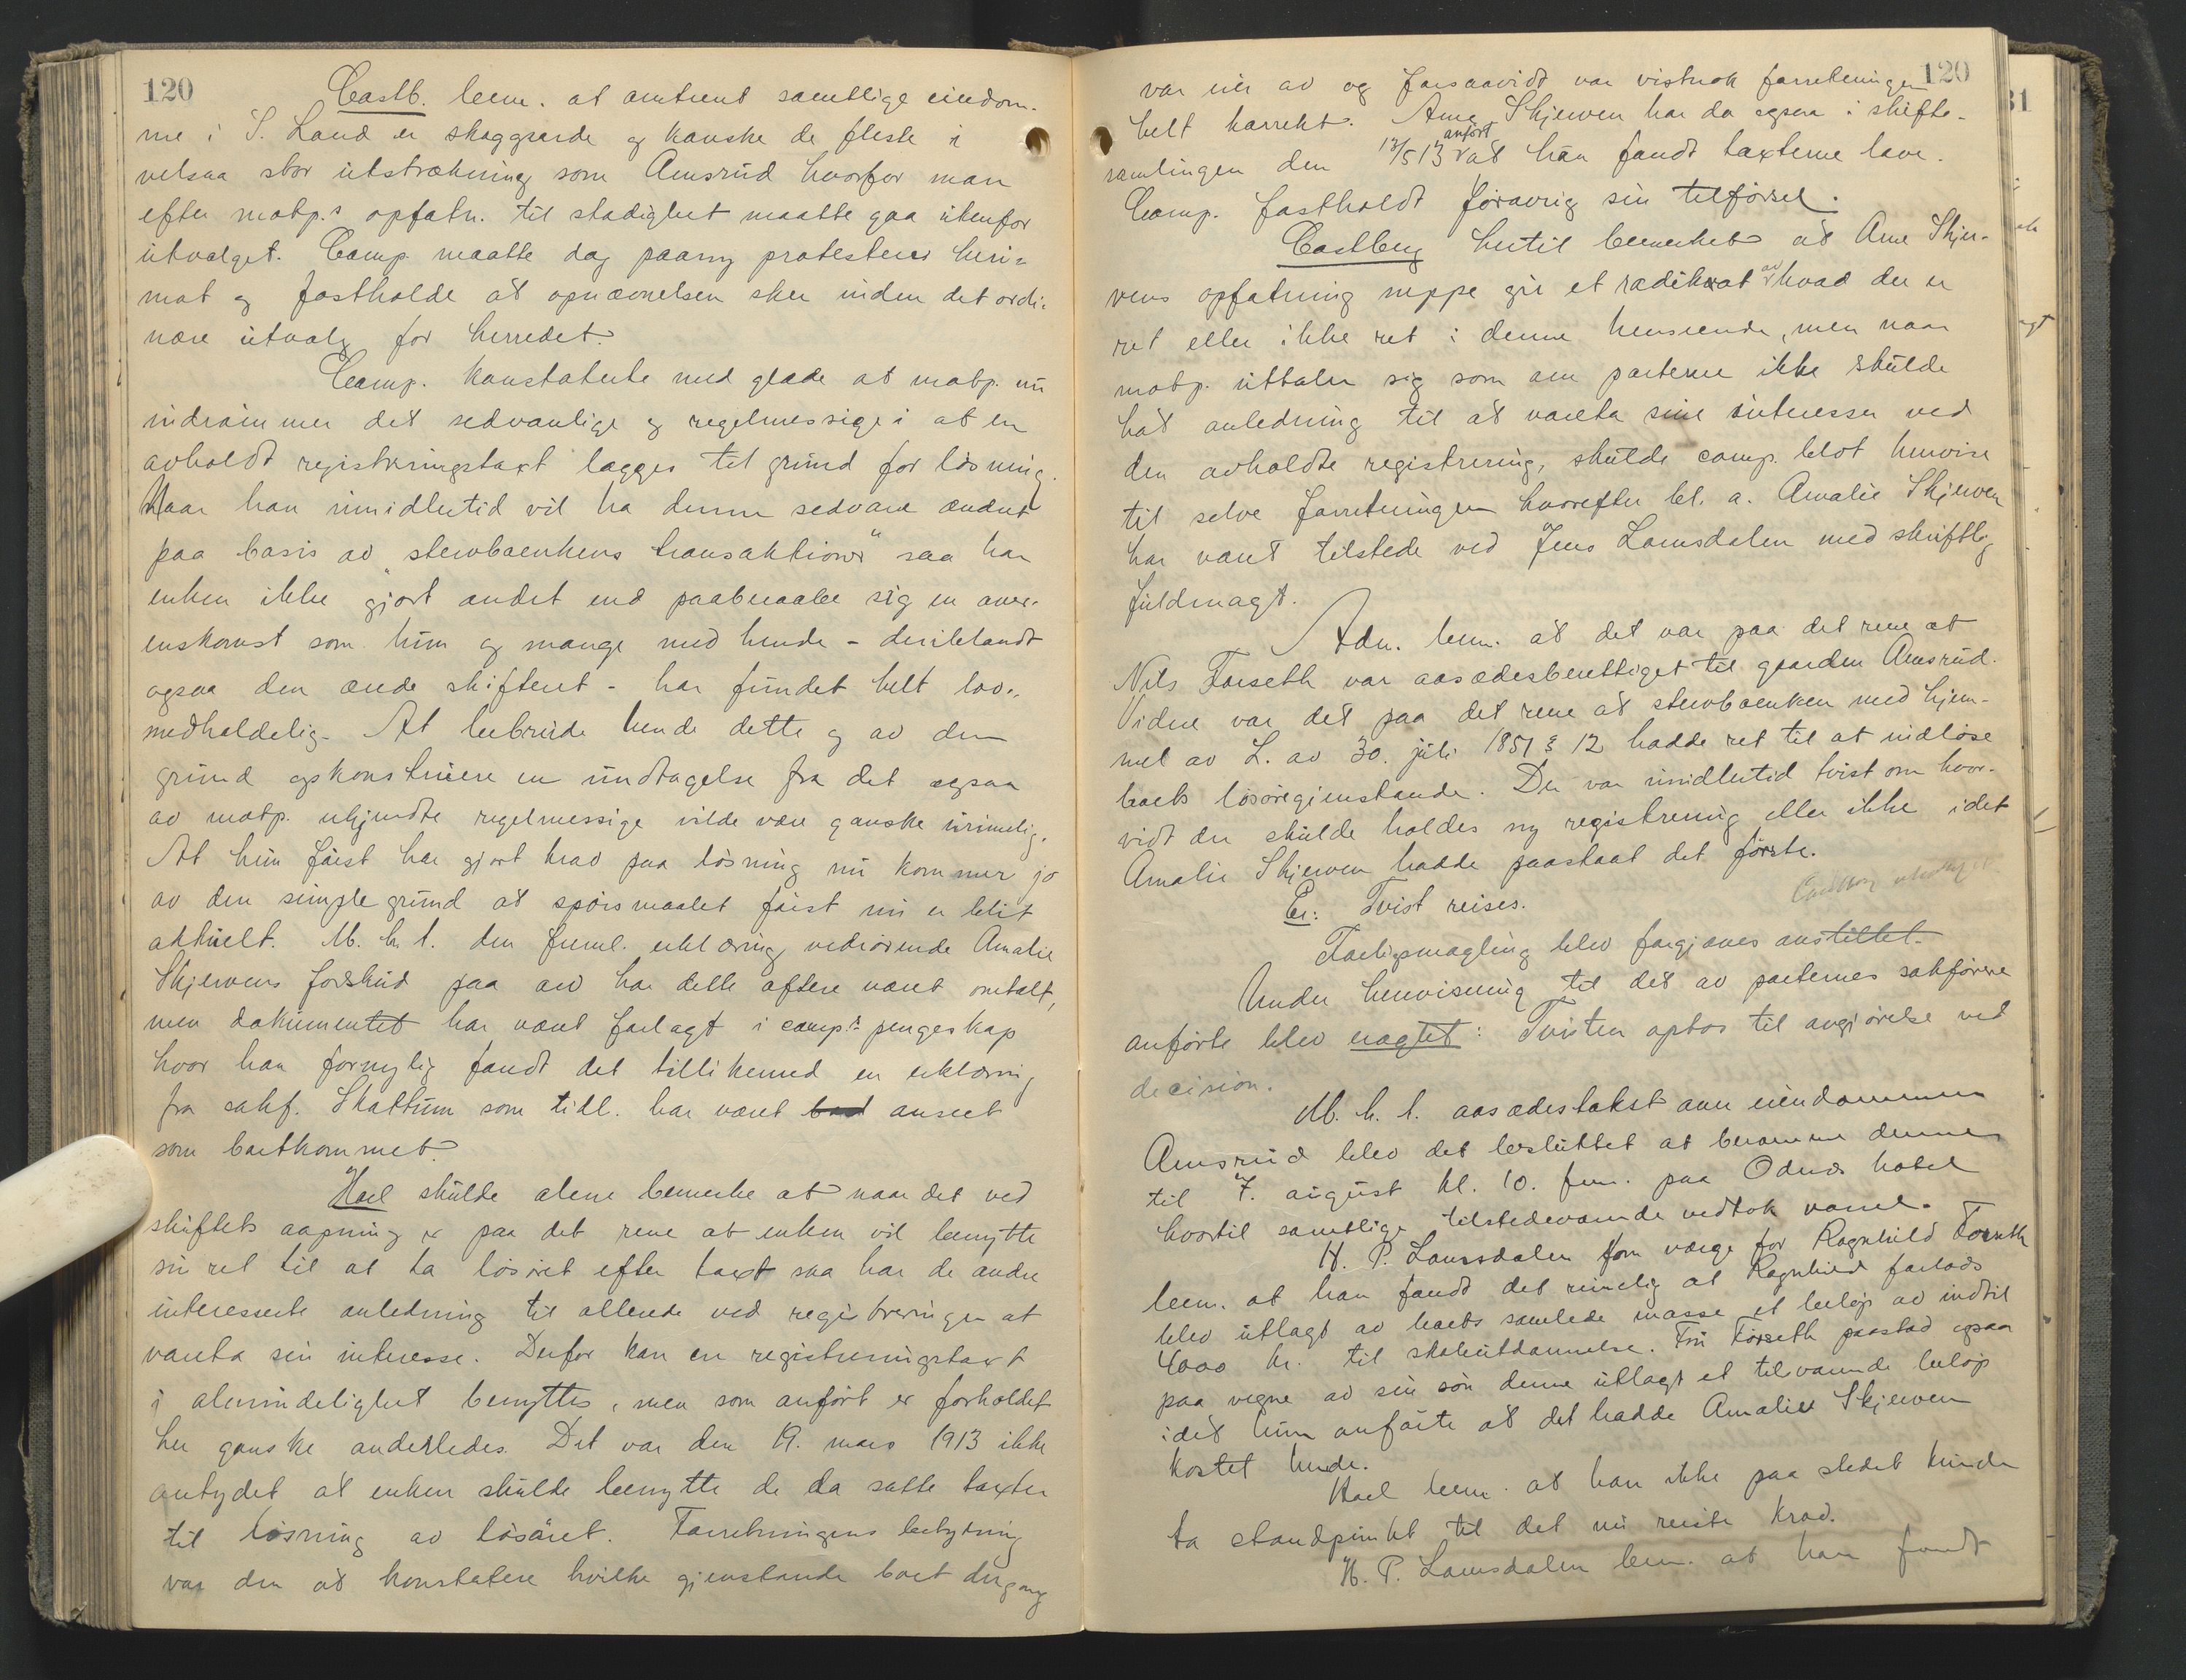 120
Castb. bem. at omtrent samtlige eiendom-
me i S. Land er skoggaarde og kanske de fleste i
velsaa stor utstrækning som Amsrud hvorfor man
efter motp.s opfatn. til stadighet maatte gaa utenfor
utvalget. Comp. maatte dog paany protestere heri-
mot og fastholde at opnævnelsen sker inden det ordi-
nære utvalg for herredet.
Comp. konstaterte med glæde at motp. nu
indrømmer det sedvanlige og regelmessige i at en
avholdt registreringstaxt lægges til grund for løsning.
Naar han imidlertid vil ha denne sedvane ændret
paa basis av "stervboenkens transaktioner" saa har
enken ikke gjort andet end paaberaabe sig en over-
enskomst som hun og mange med hende - deriblandt
ogsaa den ærede skifteret - har fundet helt lov-
medholdelig. At bebreide hende dette og av den
grund opkonstruere en undtagelse fra det ogsaa
av motp. erkjendte regelmessige vilde være ganske urimelig.
At hun først har gjort krav paa løsning nu kommer jo
av den simple grund at spørsmaalet først nu er blit
aktuelt. M. h. t. den freml. erklæring vedrørende Amalie
Skjervens forskud paa arv har dette oftere været omtalt,
men dokumentet har været forlagt i comp.s pengeskap
hvor han fornylig fandt det tillikemed en erklæring
fra sakf. Skattum som tidl. har været anseet
som bortkommet.
Hoel skulde alene bemerke at naar det ved
skiftets aapning er paa det rene at enken vil benytte
sin ret til at ta løsøret efter taxt saa har de andre
interesserte anledning til allerede ved registreringen at
vareta sin interesse. Derfor kan en registreringstaxt
i almindelighet benyttes, men som anført er forholdet
her ganske anderledes. Det var den 19. mars 1913 ikke
antydet at enken skulde benytte de da satte taxter
til løsning av løsøret. Forretningens betydning
var den at konstatere hvilke gjenstande boet dengang
120
var eier av og forsaavidt var vistnok forretningen
helt korrekt. Arne Skjerven har da ogsaa i skifte-
samlingen den 13/5 13 anført at han fandt taxterne lave.
Comp. fastholdt forøvrig sin tilførsel.
Castberg hertil bemerket at Arne Skjer-
vens opfatning neppe gir et radikat av hvad der er
ret eller ikke ret i denne henseende, men naar
motp. uttaler sig som om parterne ikke skulde
hat anledning til at vareta sine interesser ved
den avholdte registrering, skulde comp. blot henvise
til selve forretningen hvorefter bl. a. Amalie Skjerven
har været tilstede ved Jens Lomsdalen med skriftlig
fuldmagt.
Adm. bem. at det var paa det rene at
Nils Forseth var aasædesberettiget til gaarden Amsrud.
Videre var det paa det rene at stervboenken med hjem-
mel av L. av 30. juli 1851 § 12 hadde ret til at indløse
boets løsøregjenstande. Der var imidlertid tvist om hvor-
vidt der skulde holdes ny registrering eller ikke idet
Amalie Skjerven hadde paastaat det første.
Er: Tvist reises.
Forliksmægling blev forgjæves anstillet.
Under henvisning til det av parternes sakførere
anførte blev eragtet: Tvisten optas til avgjørelse ved
decision.
M. h. t. aasædestakst over eiendommen
Amsrud blev det besluttet at beramme denne
til 7. august kl. 10. fm. paa Odnæs hotel
hvortil samtlige tilstedeværende vedtok varsel.
H. P. Lomsdalen som værge for Ragnhild Forseth
bem. at han fandt det rimelig at Ragnhild forlods
blev utlagt av boets samlede masse et beløp av indtil
4000 kr. til skoleutdannelse. Fru Forseth paastod ogsaa
paa vegne av sin søn denne utlagt et tilsvarende beløp
idet hun anførte at det hadde Amalie Skjerven
kostet hende.
Hoel bem. at han ikke paa stedet kunde
ta standpunkt til det nu reiste krav.
H. P. Lomsdalen bem. at han fandt